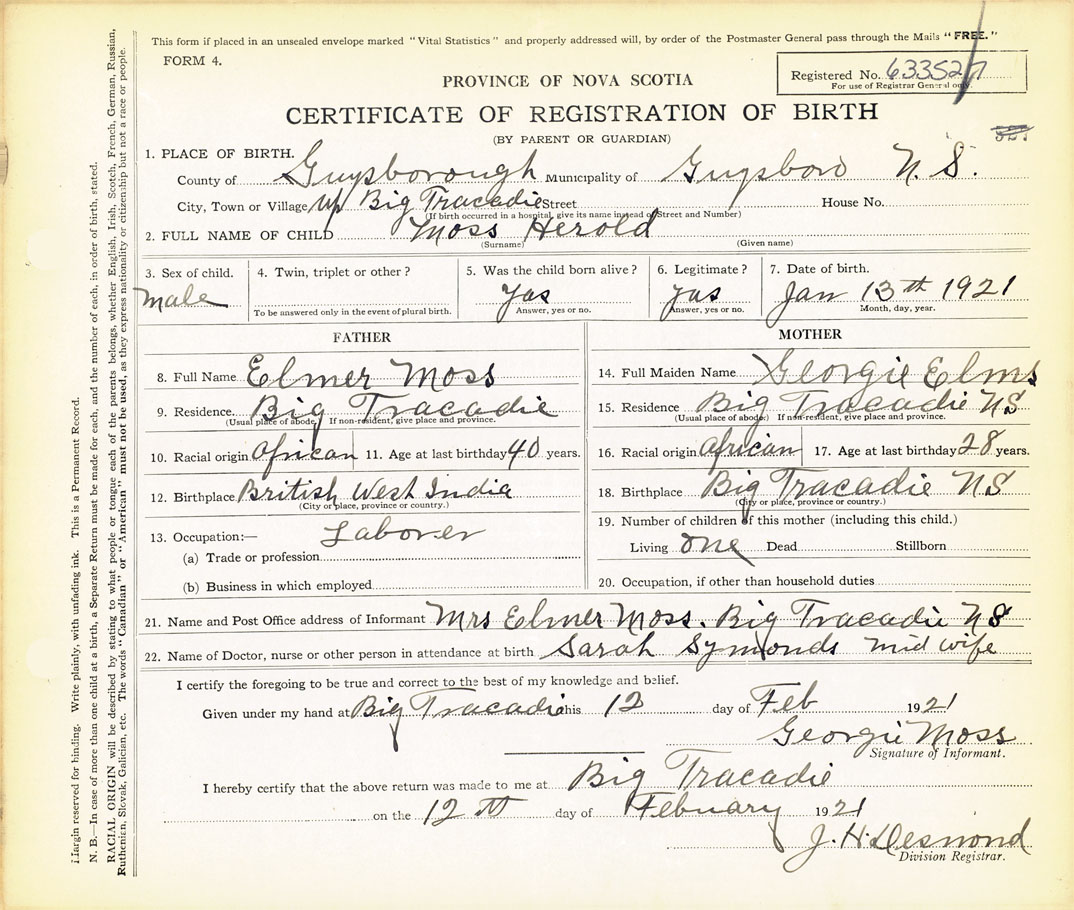 This form if placed in an unsealed envelope marked "Vital Statistics" and properly addressed will, by order of the Postmaster General pass through the Mails "FREE."
FORM 4.
Registered No. 633527
For use of Registrar General only.
PROVINCE OF NOVA SCOTIA
CERTIFICATE OF REGISTRATION OF BIRTH
(BY PARENT OR GUARDIAN)
1. PLACE OF BIRTH.
County of Guysborough Municipality of Guysboro N. S.
City, Town or Village Up Big Tracadie Street House No.
(If birth occurred in a hospital, give its name instead of Street and Number)
2. FULL NAME OF CHILD Moss Herold
(Surname) (Given name)
3. Sex of child. 4. Twin, triplet or other? 5. Was the child born alive? 6. Legitimate? 7. Date of birth.
male yas yas Jan 13th 1921
To be answered only in the event of plural birth. Answer, yes or no. Answer, yes or no. Month, day, year.
FATHER
8. Full Name Elmer Moss
9. Residence. Big Tracadie
(Usual place of abode. If non-resident, give place and province.
10. Racial origin African 11. Age at last birthday 40 years.
12. Birthplace British West India
(City or place, province or country.)
13. Occupation:— Laborer
(a) Trade or profession
(b) Business in which employed
MOTHER
14. Full Maiden Name Georgie Elms
15. Residence Big Tracadie NS
(Usual place of abode) If non-resident, give place and province.
16. Racial origin African 17. Age at last birthday 28 years.
18. Birthplace Big Tracadie NS
(City or place, province or country.)
19. Number of children of this mother (including this child.)
Living one Dead Stillborn
20. Occupation, if other than household duties
21. Name and Post Office address of Informant Mrs Elmer Moss. Big Tracadie NS
22. Name of Doctor, nurse or other person in attendance at birth Sarah Symonds mid wife
I certify the foregoing to be true and correct to the best of my knowledge and belief.
Given under my hand at Big Tracadie this 12 day of Feb 1921
Georgie Moss
Signature of Informant.
I hereby certify that the above return was made to me at Big Tracadie
on the 12th day of Febuary 1921
J. H. Desmond
Division Registrar.
Margin reserved for binding. Write plainly, with unfading ink. This is a Permanent Record.
N. B.—In case of more than one child at a birth, a Separate Return must be made for each, and the number of each, in order of birth, stated.
RACIAL ORIGIN will be described by stating to what people or tongue each of the parents belongs, whether English, Irish, Scotch, French, German, Russian,
Ruthenian, Slovak, Galician, etc. The words "Canadian" or "American" must not be used, as they express nationality or citizenship but not a race or people.